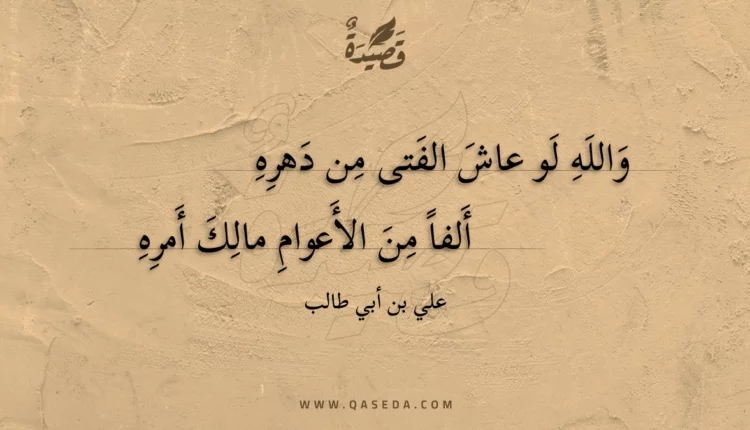 قَصِيدَةٌ
وَاللَهِ لَو عاشَ الفَتى مِن دَهرِهِ
أَلفاً مِنَ الأَعوامِ مالِكَ أَمرِهِ
علي بن أبي طالب
WWW.QASEDA.COM